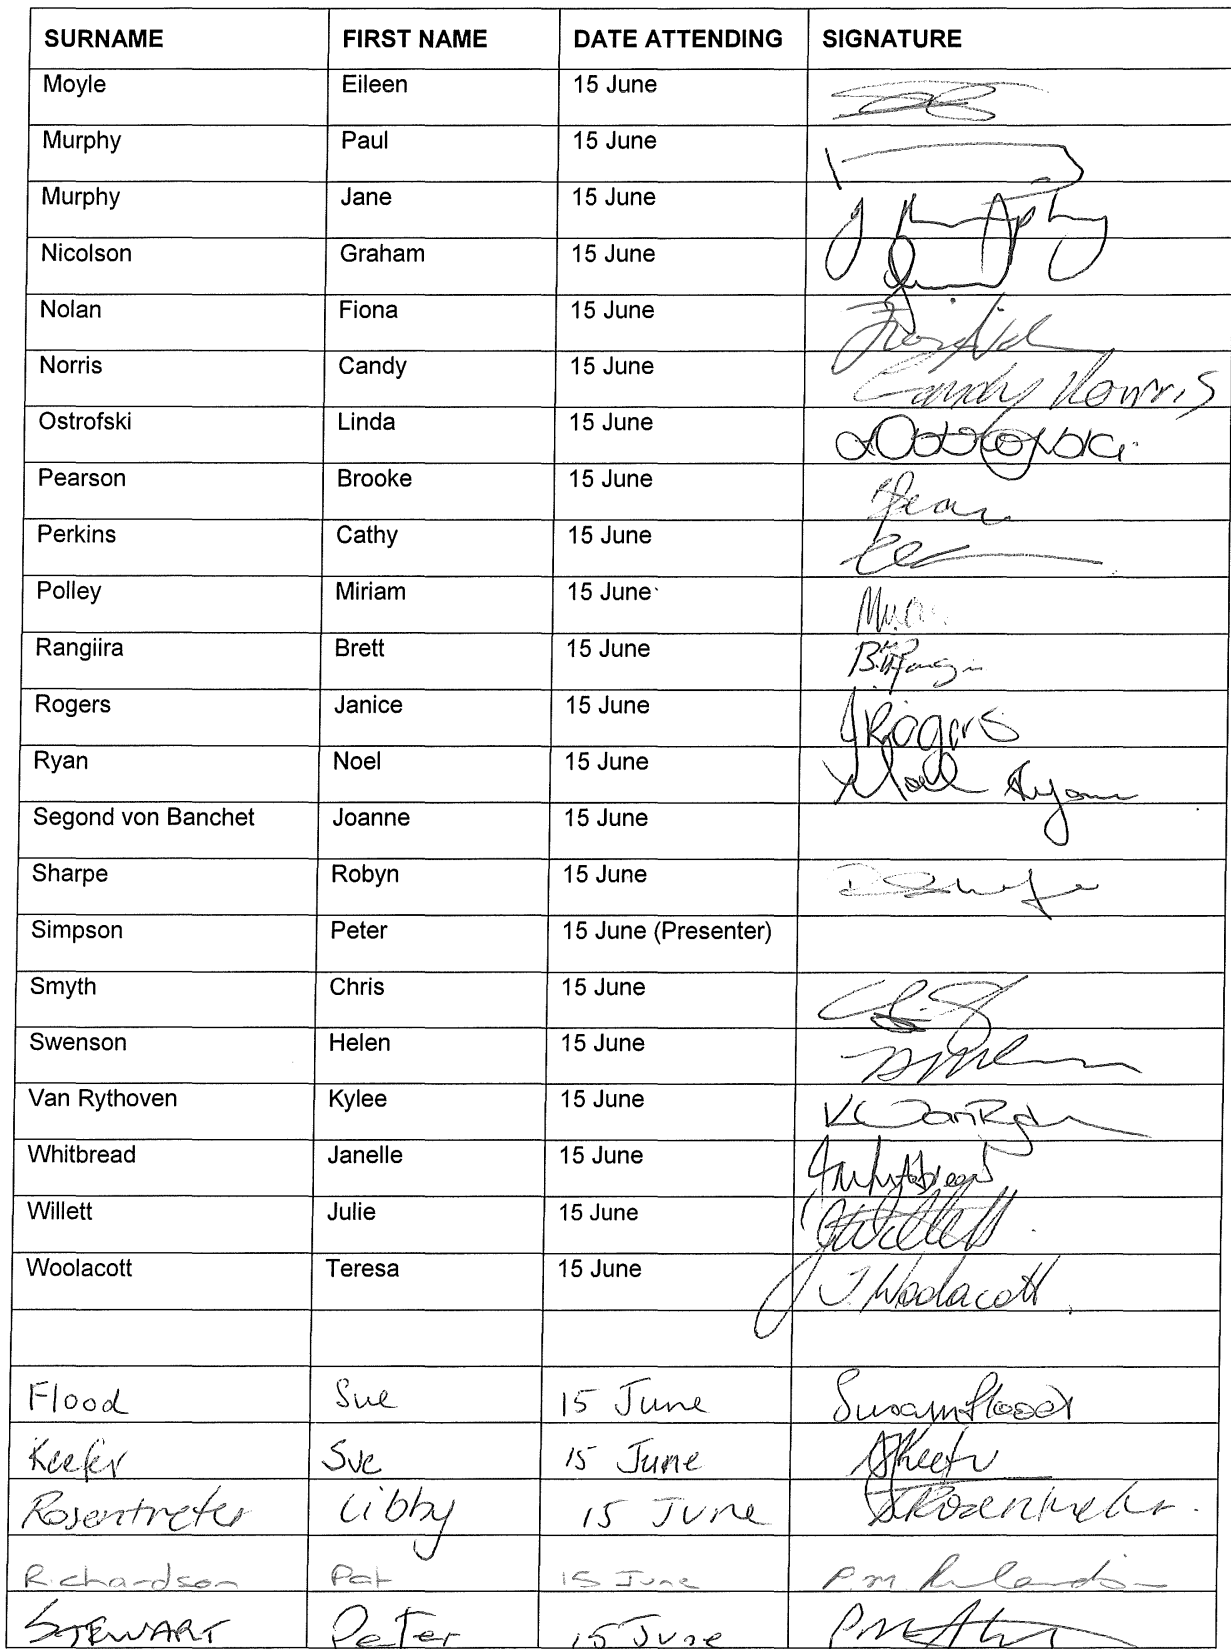 SURNAME FIRST NAME DATE ATTENDING SIGNATURE
Moyle Eileen 15 June
Murphy Paul 15 June
Murphy Jane 15 June J Murphy
Nicolson Graham 15 June
Nolan Fiona 15 June
Norris Candy 15 June Candy Norris
Ostrofski Linda 15 June LOstrofski
Pearson Brooke 15 June
Perkins Cathy 15 June
Polley Miriam 15 June
Rangiira Brett 15 June
Rogers Janice 15 June JRogers
Ryan Noel 15 June Noel Ryan
Segond von Banchet Joanne 15 June
Sharpe Robyn 15 June
Simpson Peter 15 June (Presenter)
Smyth Chris 15 June
Swenson Helen 15 June
Van Rythoven Kylee 15 June
Whitbread Janelle 15 June JWhitbread
Willett Julie 15 June JWillett
Woolacott Teresa 15 June T. Woolacott
Flood Sue 15 June Susan Flood
Keefer Sue 15 June SKeefer
Rosentreter Libby 15 June
Richardson Pat 15 June
STEWART Peter 15 June